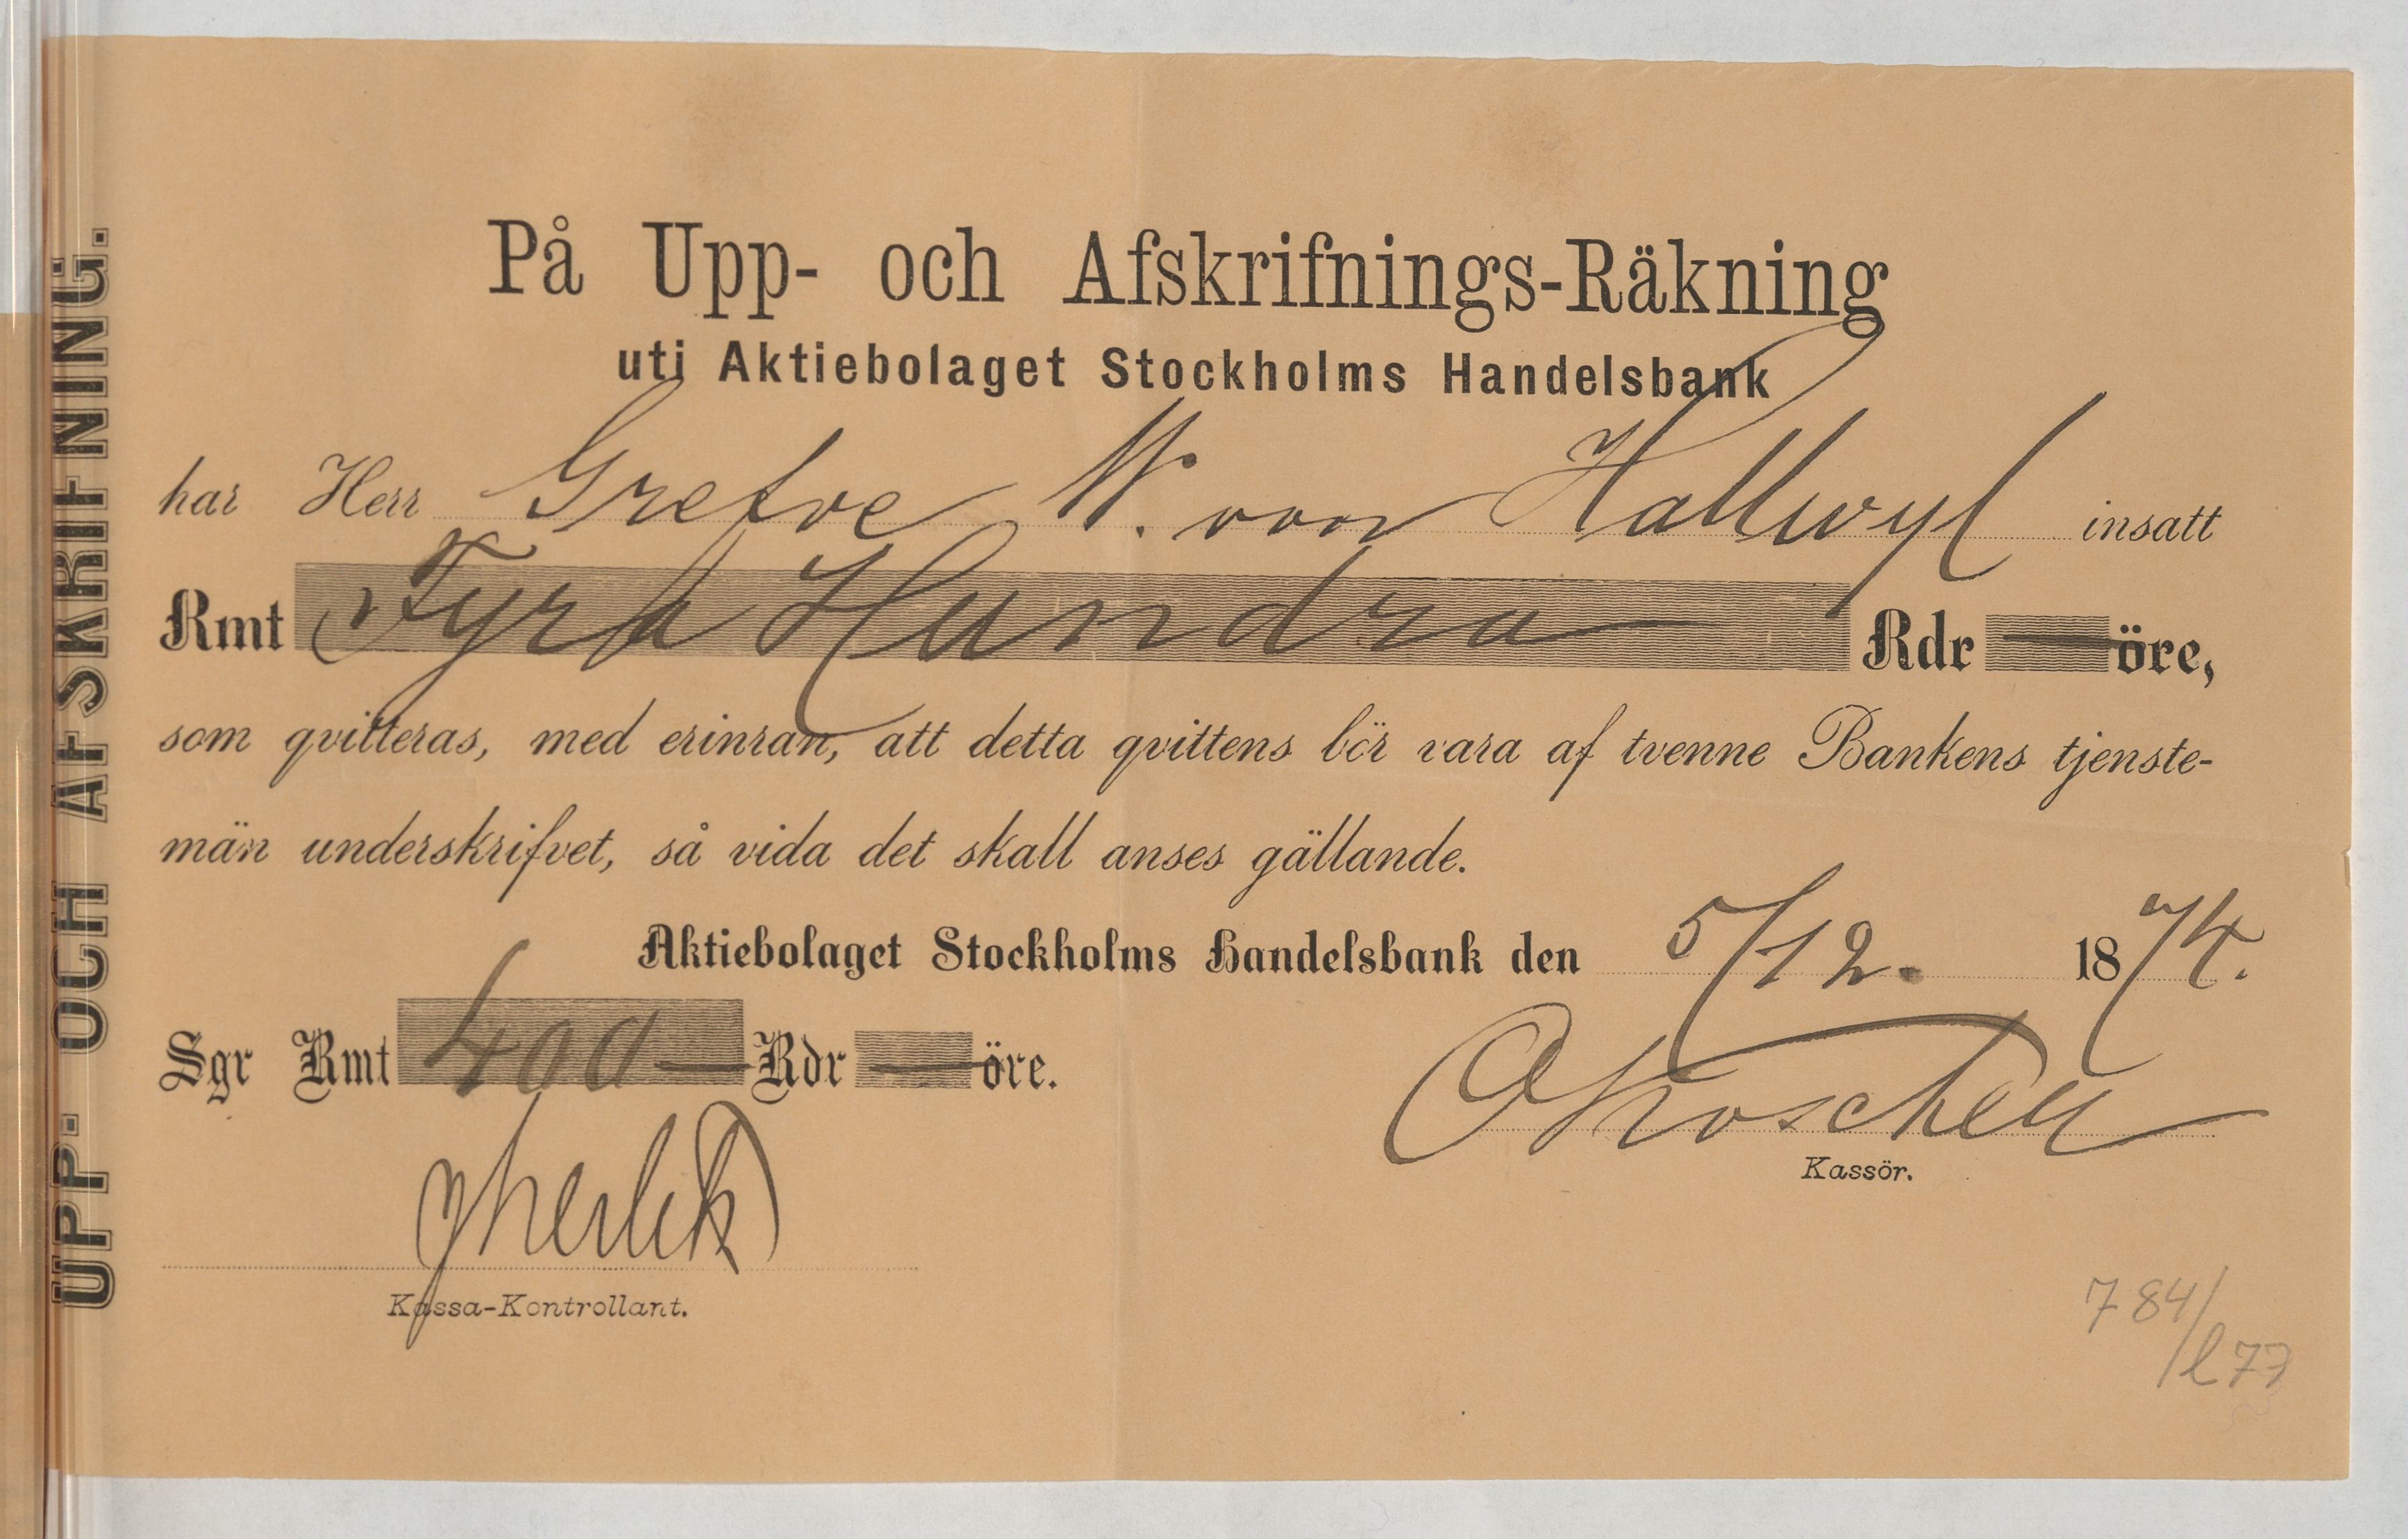 UPP- OCH AFSKRIFNING.
På Upp- och Afskrifnings-Räkning
uti Aktiebolaget Stockholms Handelsbank
har Herr Grefve W. von Hallwyl insatt
Rmt Fyra Hundra — Rdr — öre,
som qvitteras, med erinran, att detta qvittens bör vara af tvenne Bankens tjenste-
män underskrifvet, så vida det skall anses gällande.
Aktiebolaget Stockholms Handelsbank den 5/12. 1874.
Sgr Rmt 400 — Rdr — öre.
Kassör.
Kassa-Kontrollant.
784/
l77